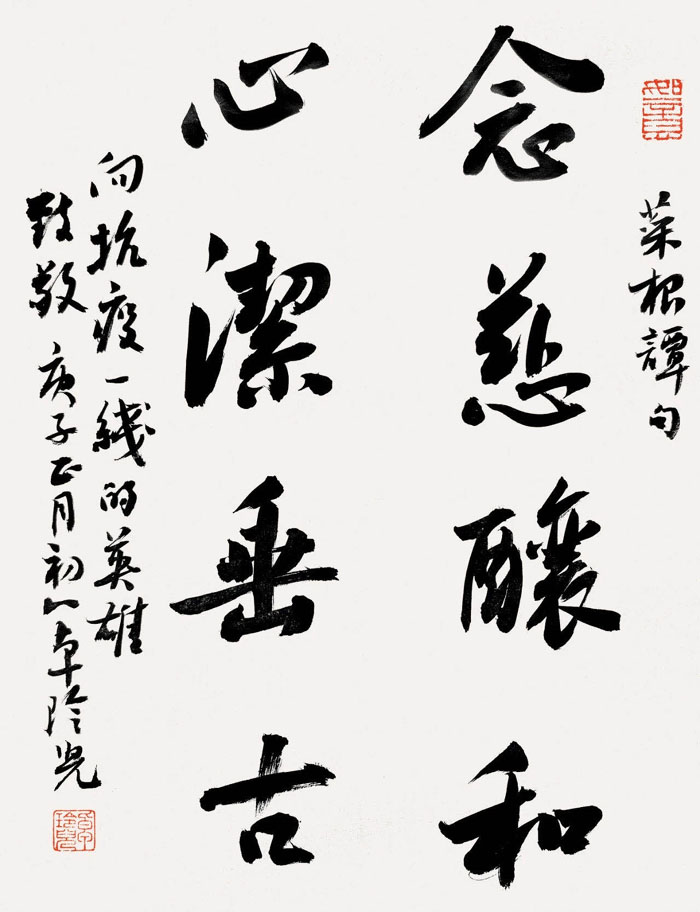 菜根譚句
念慈釀和
心潔垂古
向抗疫一綫的英雄
致敬 庚子正月初八章